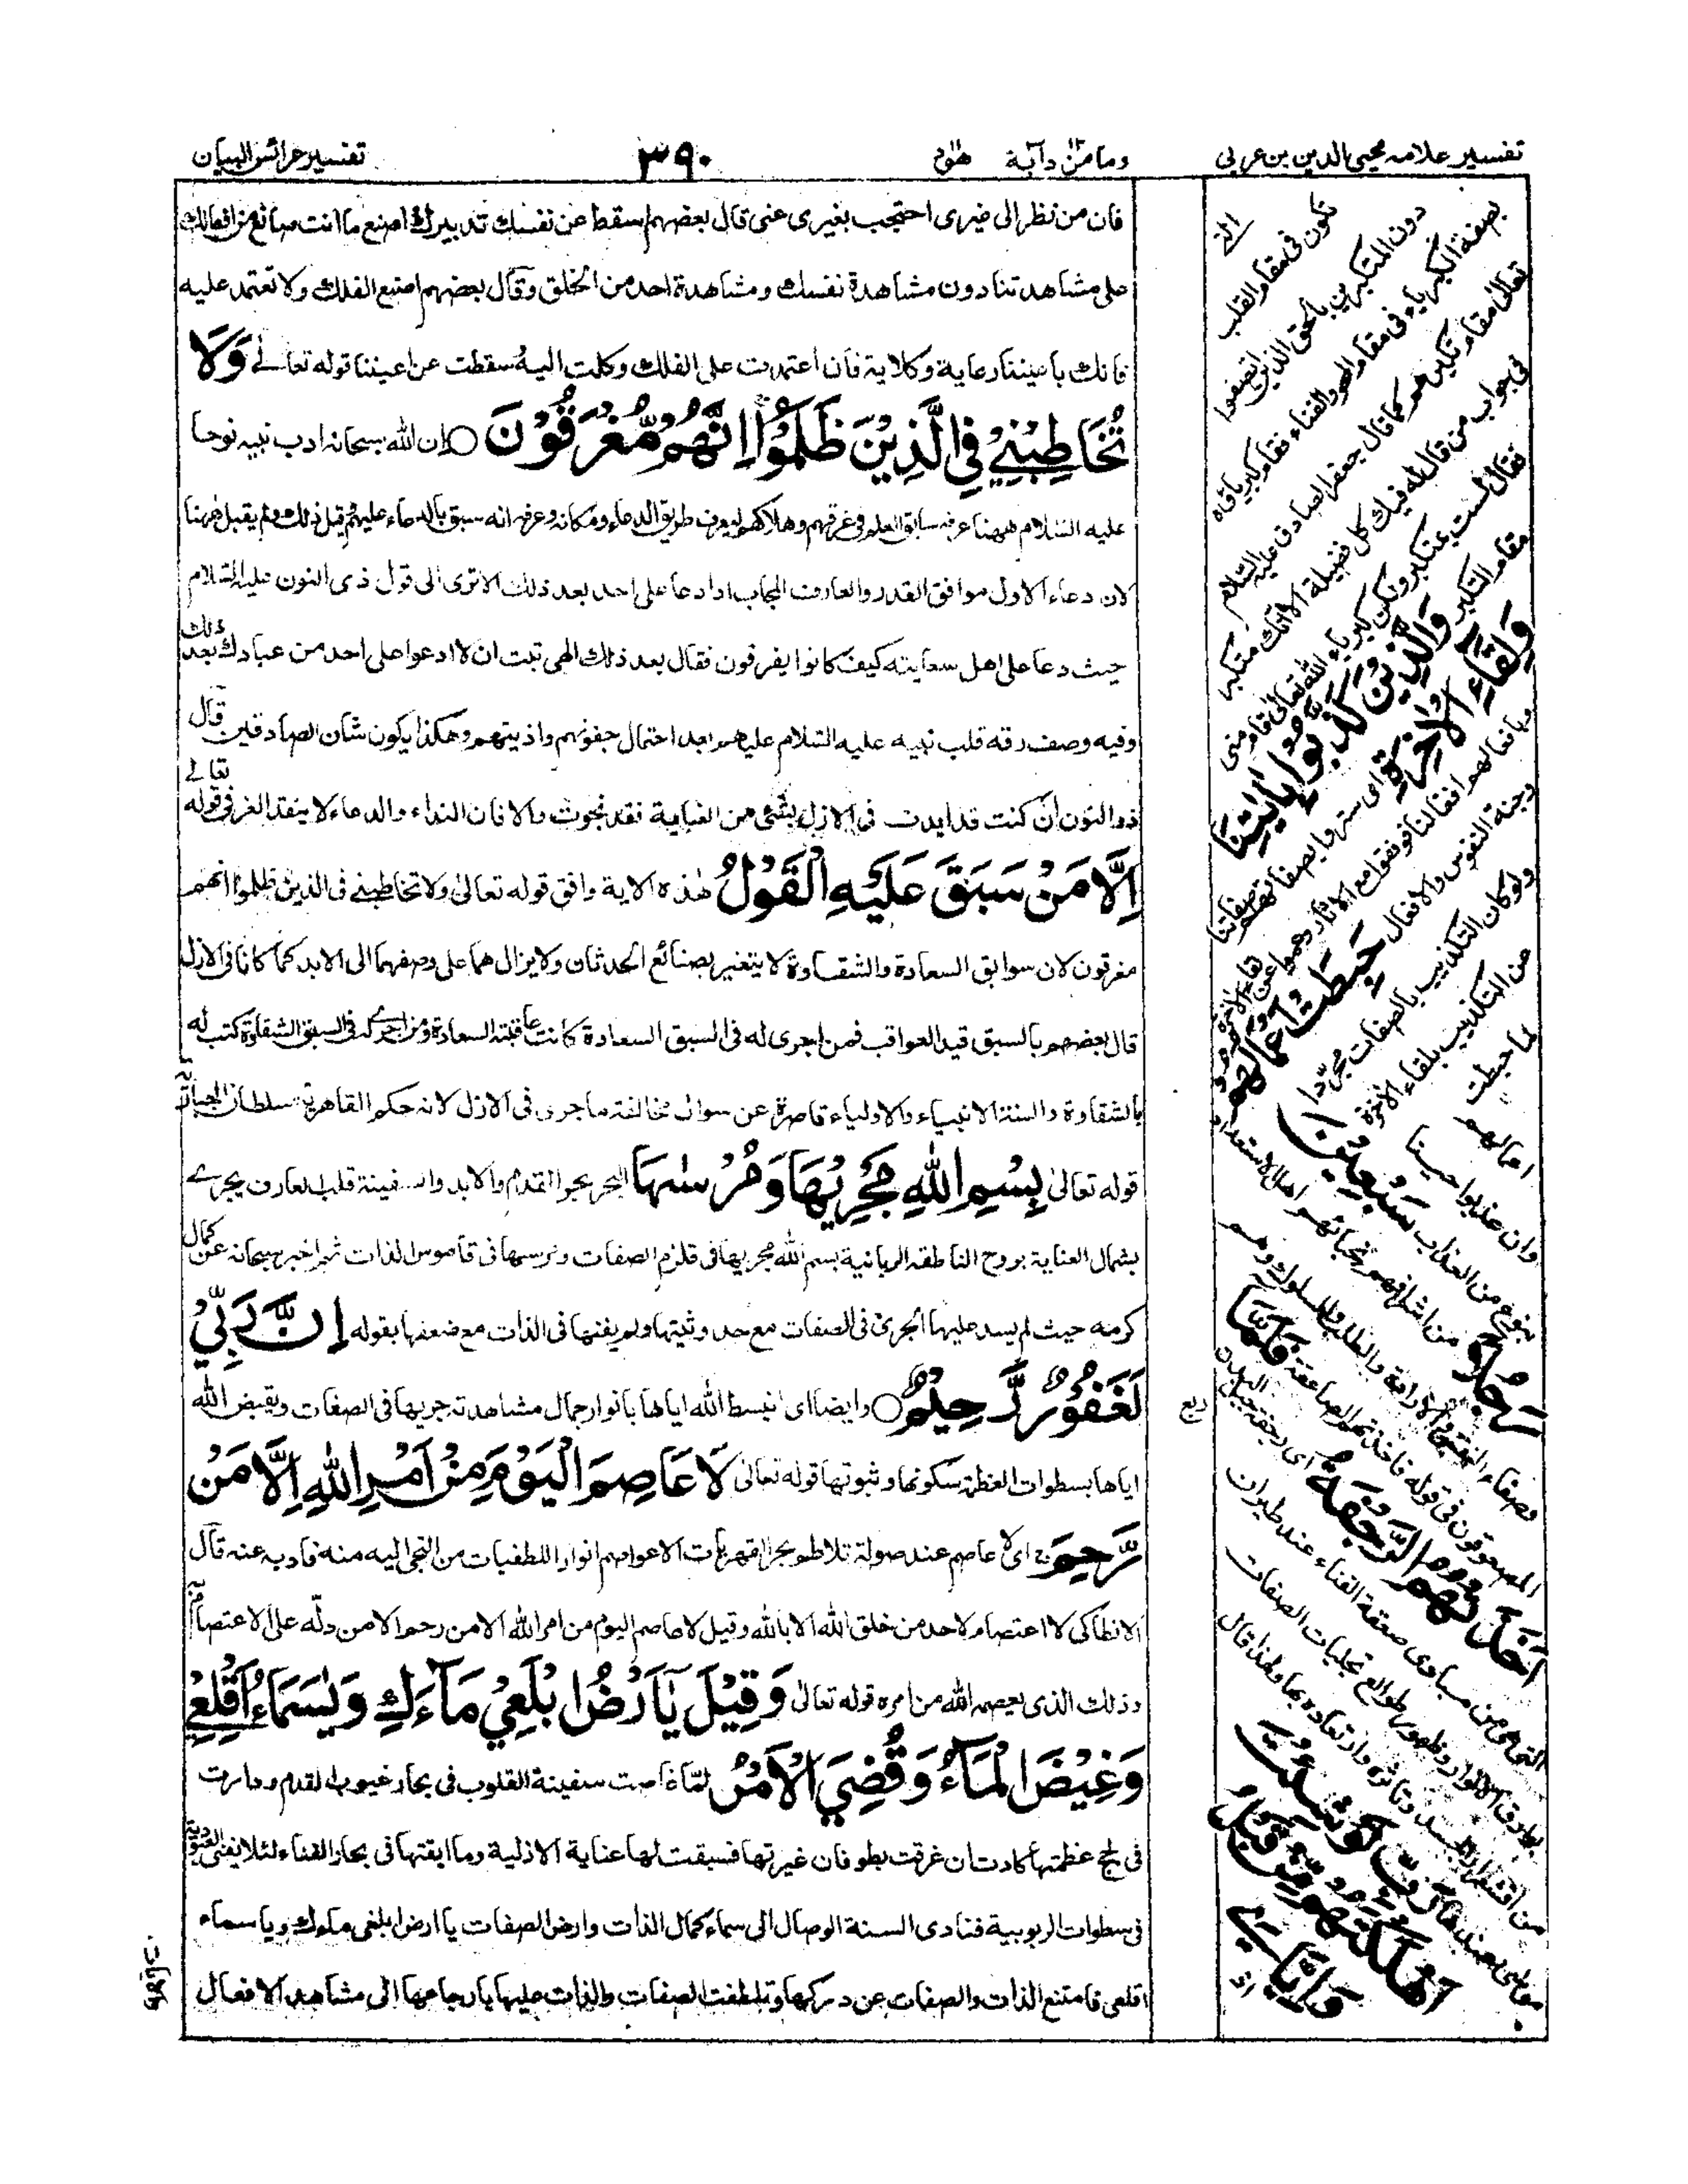 تفسير علامه محيى الدين بن عربى
ومامن دآبة ١٢ هود
٣٩٠
تفسير عرائس البيان
فان من نظر الى غيرى احتجب بغيرى عنى قال بعضهم اسقط عن نفسك تدبيرك اصنع ما انت صانع من افعالك
على مشاهدتنا دون مشاهدة نفسك ومشاهدة احد من الخلق وقال بعضهم اصنع الفلك ولا تعتمد عليه
فانك باعيننا رعاية وكلاية فان اعتمدت على الفلك وكلت اليه سقطت عن اعيننا قوله تعالے وَلَا
تُخَاطِبْنِيْ فِي الَّذِيْنَ ظَلَمُوْا اِنَّهُمْ مُّغْرَقُوْنَ ○ ان الله سبحانه ادب نبيه نوحا
عليه السلام ههنا عرفه سابق العلم فى غرقهم وهلاكهم ليعرف طريق الدعاء ومكانه وعرفه انه سبق بالدعاء عليهم قبل ذلك ولم يقبل ههنا
لان دعاء الاول موافق القدر والعارف المجاب اذا دعا على احد بعد ذلك الا ترى الى قول ذى النون عليه السلام
حيث دعا على اهل سعايته كيف كانوا يغرقون فقال بعد ذلك الهى تبت ان لا ادعوا على احد من عبادك بعد ذلك
وفيه وصف رقة قلب نبيه عليه السلام عليهم بعد احتمال جفوتهم واذيتهم وهكذا يكون شان الصادقين قال
ذو النون ان كنت قد ايدت فى الازل بشئ من العناية فقد نجوت والا فان النداء والدعاء لا ينقذ الغرقى قوله تعالے
اِلَّا مَنْ سَبَقَ عَلَيْهِ الْقَوْلُ هذه الاية وافق قوله تعالى ولا تخاطبنے فى الذين ظلموا انهم
مغرقون لان سوابق السعادة والشقاوة لا يتغير بصنائع الحدثان ولا يزال هما على وصفهما الى الابد كما كانا فى الازل
قال بعضهم بالسبق قيد العواقب فمن اجرى له فى السبق السعادة كانت عاقبته السعادة ومن اجرے له فى السبق الشقاوة كتب له
بالشقاوة والسنة الانبياء والاولياء قاصرة عن سوال مخالفة ما جرى فى الازل لانه حكم القاهرية سلطان الجبارية
قوله تعالى بِسْمِ اللّٰهِ مَجْرٖىهَا وَمُرْسٰهَا البحر بحر القدم والابد والسفينة قلب العارف يجرے
بشمال العناية بروح الناطقه الربانية بسم الله مجريها فى قلزم الصفات ومرسيها فى قاموس الذات ثم اخبر سبحانه عن كمال
كرمه حيث لم يسد عليها الجرى فى الصفات مع حدوثيتها ولم يفنها فى الذات مع ضعفها بقوله اِنَّ رَبِّيْ
لَغَفُوْرٌ رَّحِيْمٌ ○ وايضا اى انبسط الله اياها بانوار جمال مشاهدته جريها فى الصفات ويقبض الله
اياها بسطوات العظمة سكونها وثبوتها قوله تعالى لَا عَاصِمَ الْيَوْمَ مِنْ اَمْرِ اللّٰهِ اِلَّا مَنْ
رَّحِمَ اى لا عاصم عند صولة تلاطم بحر القهريات الا عواصم انوار اللطفيات من التجى اليه منه فاد به عنه قال
الانطاكى لا اعتصام لاحد من خلق الله الا بالله وقيل لا عاصم اليوم من امر الله الا من رحم الا من دلّه على الاعتصام منه
وذلك الذى يعصمه الله من امره قوله تعالى وَقِيْلَ يٰۤاَرْضُ ابْلَعِيْ مَآءَكِ وَيٰسَمَآءُ اَقْلِعِيْ
وَغِيْضَ الْمَآءُ وَقُضِيَ الْاَمْرُ لمّا غاصت سفينة القلوب فى بحار غيوب القدم وسارت
فى لجج عظمتها كادت ان غرقت بطوفان غيرتها فسبقت لها عناية الازلية وما ابقتها فى بحار الفناء لئلا يفنى العبودية
فى سطوات الربوبية فنادى السنة الوصال الى سماء كمال الذات وارض الصفات يا ارض ابلغى ماءك ويا سماء
اقلعى فامتنع الذات والصفات عن دركها وتلطفت الصفات والذات عليها بارجاعها الى مشاهد الافعال
ربع
تلون فى مقام القلب
دون المتكبرين بالحق الذين اتصفوا
بصفة الكبرياء فى مقام المحو والفناء فقام كبرياؤه
تعالى مقام تكبرهم كما قال جعفر الصادق عليه السلام
فى جواب من قال له فيك كل فضيلة الا انك متكبر
فقال لست بمتكبر ولكن كبرياء الله تعالى قام منى
مقام التكبر وَالَّذِيْنَ كَذَّبُوْا بِاٰيٰتِنَا
وَلِقَاءِ الْاٰخِرَةِ اى ستروا بصفاتهم صفاتنا
وبافعالهم افعالنا فوقفوا مع الاثار وعموا عن لقاء الاخرة
وجنة النفوس والافعال حَبِطَتْ اَعْمَالُهُمْ
ولو كان التكذيب بالصفات مجرّدا
عن التكذيب بلقاء الاخرة
لما حبطت
اعمالهم
وان عذبوا حينا
بنوع من العذاب سَبْعِيْنَ
رَجُلًا من اشرافهم نجبائهم اهل الاستعداد
وصفاء النفس والارادة والطلب والسلوك وهم
المصعوقون فى قوله فاخذتهم الصاعقة فَلَمَّا
اَخَذَتْهُمُ الرَّجْفَةُ اى رجفة جبل البدن
التى هى من مبادى صعقة الفناء عند طيران
بوارق الانوار وظهور طوالع تجليات الصفات
من اقشعرار الجسد وتاثره وارتعاده بها ولهذا قال
موسى عندها رَبِّ لَوْ شِئْتَ
اَهْلَكْتَهُمْ مِّنْ قَبْلُ
وَاِيَّايَ